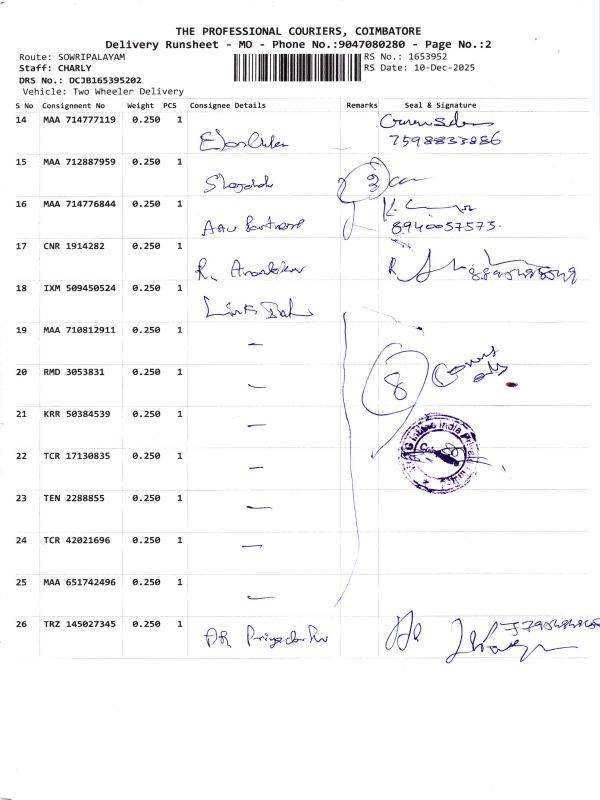 THE PROFESSIONAL COURIERS, COIMBATORE
Delivery Runsheet - MO - Phone No.:9047080280 - Page No.:2
Route: SOWRIPALAYAM RS No.: 1653952
Staff: CHARLY RS Date: 10-Dec-2025
DRS No.: DCJB165395202
Vehicle: Two Wheeler Delivery
S No Consignment No Weight PCS Consignee Details Remarks Seal & Signature
14 MAA 714777119 0.250 1
7598833886
15 MAA 712887959 0.250 1
3
16 MAA 714776844 0.250 1
8940057573.
17 CNR 1914282 0.250 1
R.
18 IXM 509450524 0.250 1
19 MAA 710812911 0.250 1
—
20 RMD 3053831 0.250 1
— 8
21 KRR 50384539 0.250 1
—
22 TCR 17130835 0.250 1
—
23 TEN 2288855 0.250 1
—
24 TCR 42021696 0.250 1
—
25 MAA 651742496 0.250 1
—
26 TRZ 145027345 0.250 1